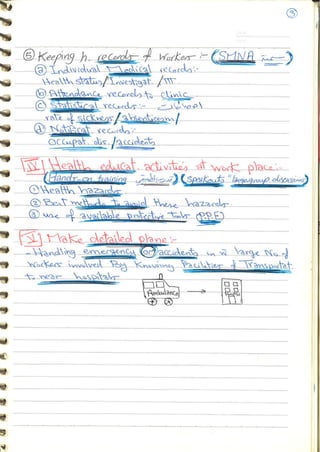 9
⑤ Keeping h. records of Workers :- (SMNA)
ⓐ Individual Medical records:-
Health status/Investigat. /ttt
ⓑ Attendance records to clinic.
ⓒ Statistical records:-
rate of sickness/absenteeism/
ⓓ Notificat. records:-
occupat. dis./accidents
IV Health educat. activities at work place:-
(Hands on training) (spostouts language discussion)
① Health hazards
② Best methods to avoid these hazards
③ use of available protective tools (PPE)
V Make detailed plans:-
- Handling emergency or accidents in large No. of
workers involved By Knowing Facilities of Transportat.
to near hospitals
Ambulance